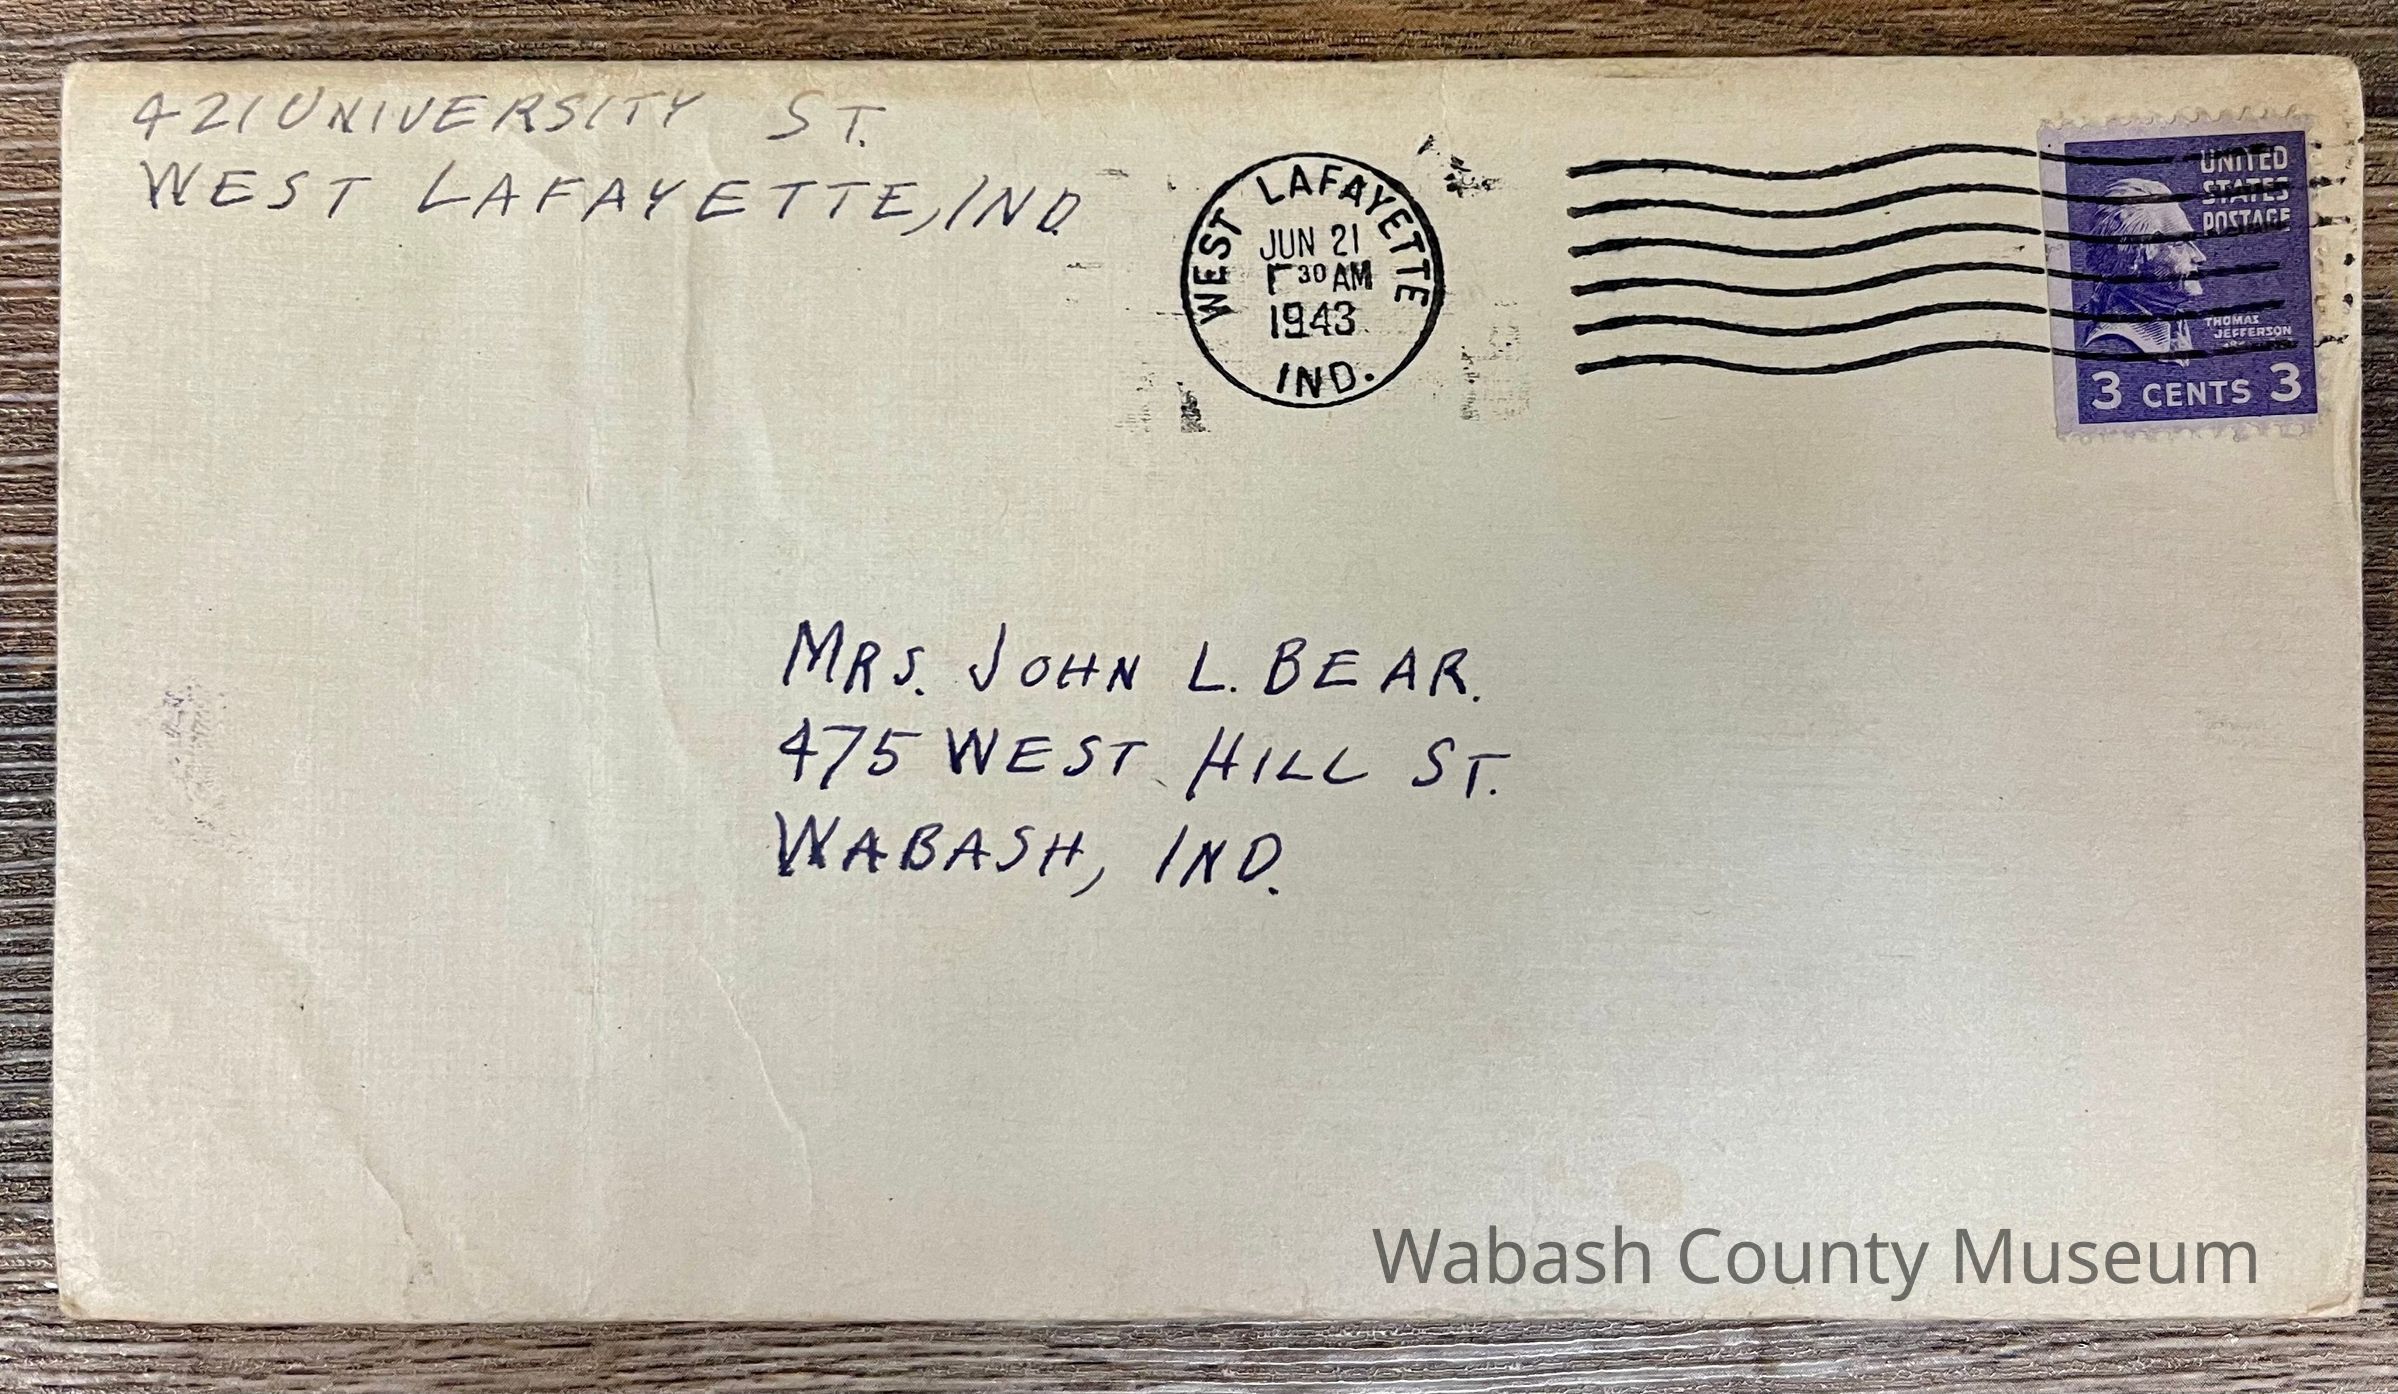 421 UNIVERSITY ST.
WEST LAFAYETTE, IND.
WEST LAFAYETTE
JUN 21
30 AM
1943
IND.
UNITED
STATES
POSTAGE
THOMAS
JEFFERSON
3 CENTS 3
MRS. JOHN L. BEAR.
475 WEST HILL ST.
WABASH, IND.
Wabash County Museum